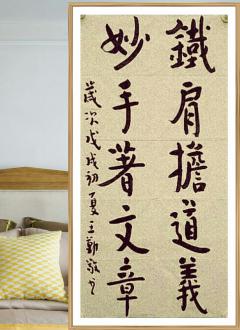 鐵肩擔道義
妙手著文章
歲次戊戌初夏王勤敬書